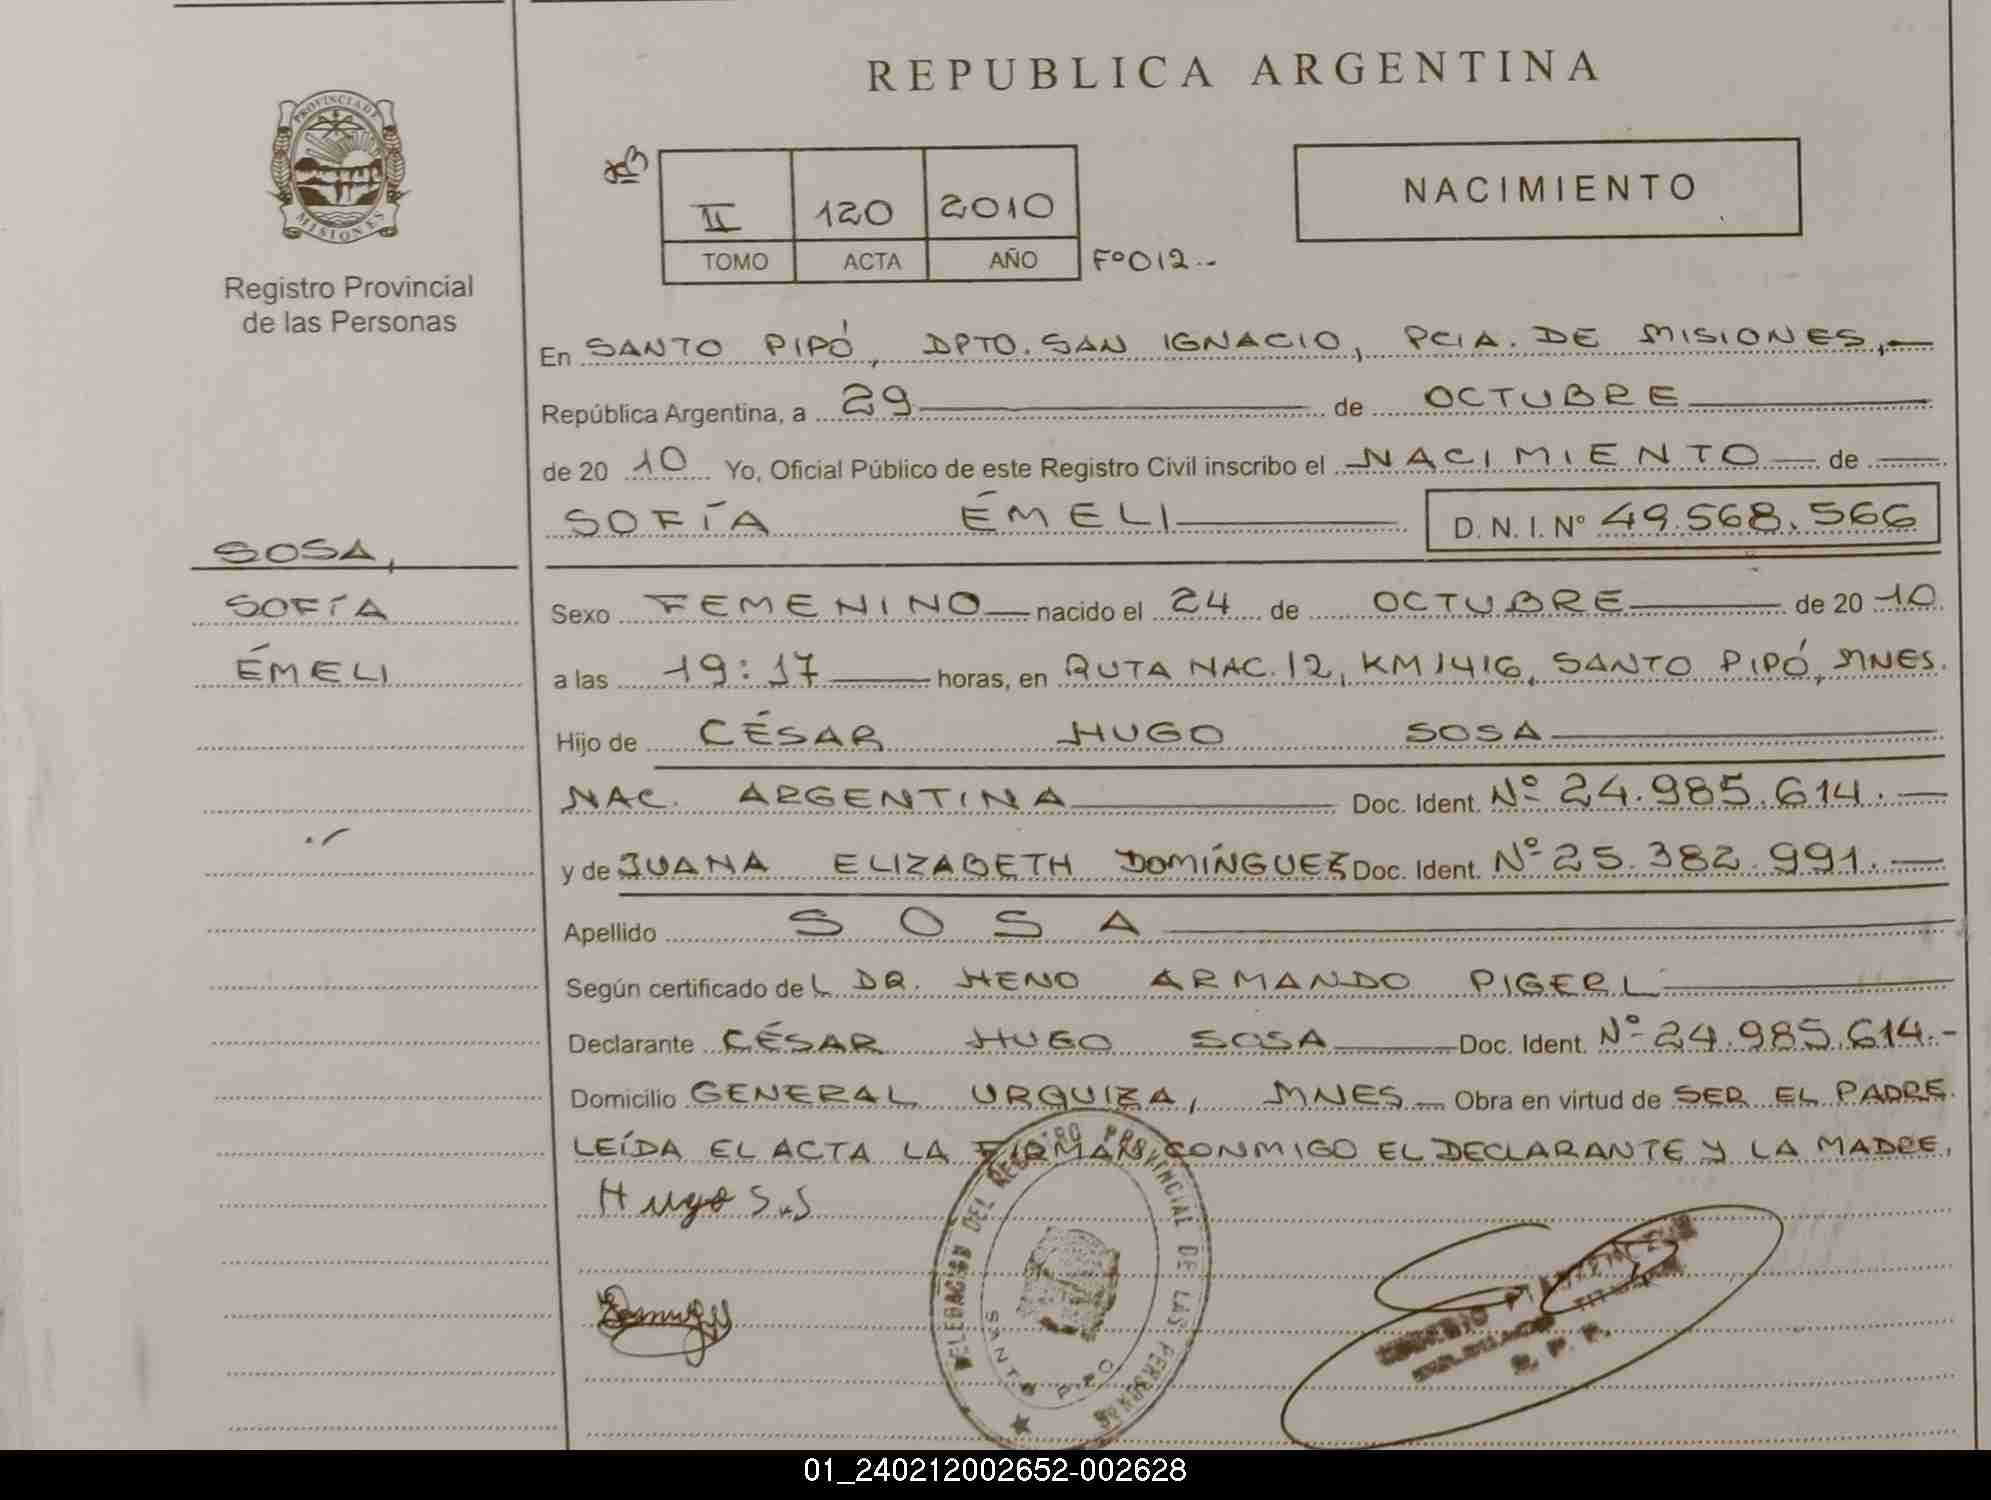 REPUBLICA ARGENTINA
PROVINCIA DE
MISIONES
Registro Provincial
de las Personas
II 120 2010
TOMO ACTA AÑO Fº012.-
NACIMIENTO
En SANTO PIPÓ, DPTO. SAN IGNACIO, PCIA. DE MISIONES,
República Argentina, a 29 de OCTUBRE
de 20 10 Yo, Oficial Público de este Registro Civil inscribo el NACIMIENTO de
SOFÍA ÉMELI D. N. I. Nº 49.568.566
SOSA,
SOFÍA
ÉMELI
Sexo FEMENINO nacido el 24 de OCTUBRE de 20 10.
a las 19:17 horas, en RUTA NAC. 12, KM 1416, SANTO PIPÓ, MNES.
Hijo de CÉSAR HUGO SOSA
NAC. ARGENTINA Doc. Ident. Nº 24.985.614.
y de JUANA ELIZABETH DOMÍNGUEZ Doc. Ident. Nº 25.382.991.
Apellido SOSA
Según certificado del DR. HENO ARMANDO PIGERL
Declarante CÉSAR HUGO SOSA Doc. Ident. Nº 24.985.614.-
Domicilio GENERAL URQUIZA, MNES Obra en virtud de SER EL PADRE.
LEÍDA EL ACTA LA FIRMAN CONMIGO EL DECLARANTE Y LA MADRE,
Hugo S.S
DELEGACION DEL REGISTRO PROVINCIAL DE LAS PERSONAS
SANTO PIPO
R. P. P.
01_240212002652-002628